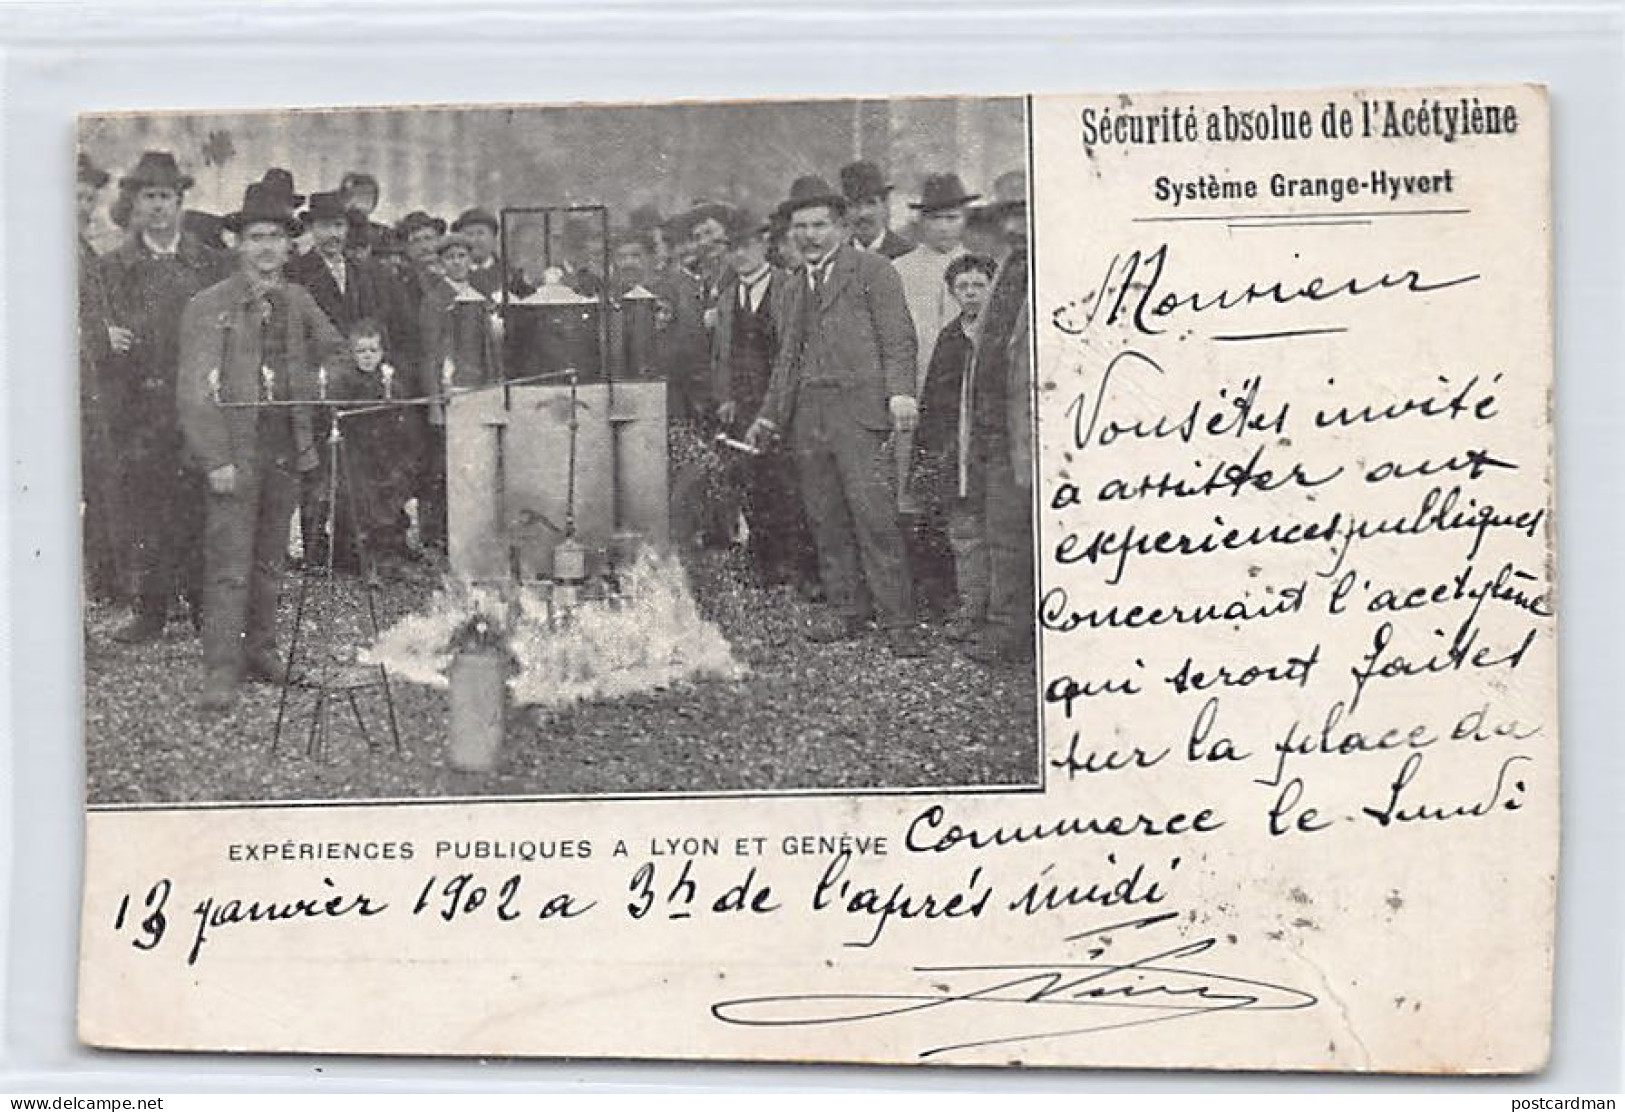 Sécurité absolue de l'Acétylène
Système Grange-Hyvert
Monsieur
Vous êtes invité
a assister aux
experiences publiques
Concernant l'acétylène
qui seront faites
sur la place du
Commerce le Lundi
EXPÉRIENCES PUBLIQUES A LYON ET GENÈVE
13 janvier 1902 a 3h de l'après midi
postcardman